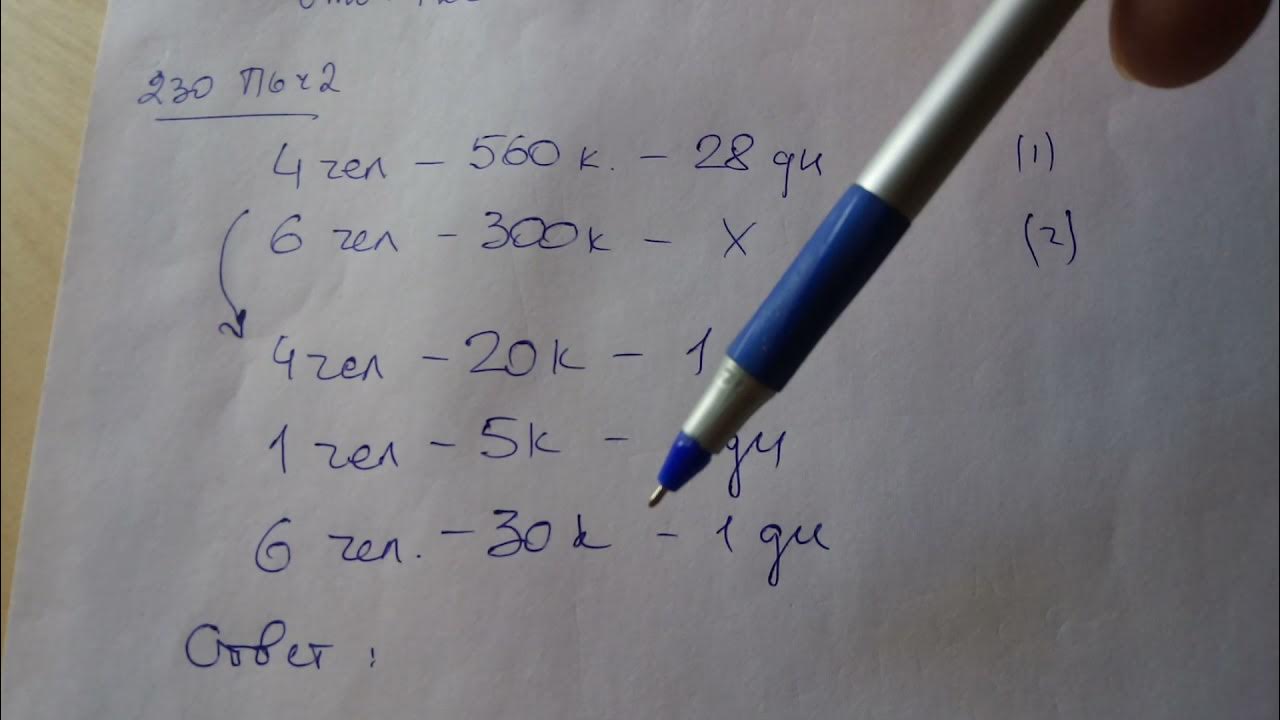 230 П6 ч2
4 чел – 560 к. – 28 дн (1)
6 чел – 300 к – X (2)
4 чел – 20 к – 1
1 чел – 5 к – дн
6 чел. – 30 к – 1 дн
Ответ :